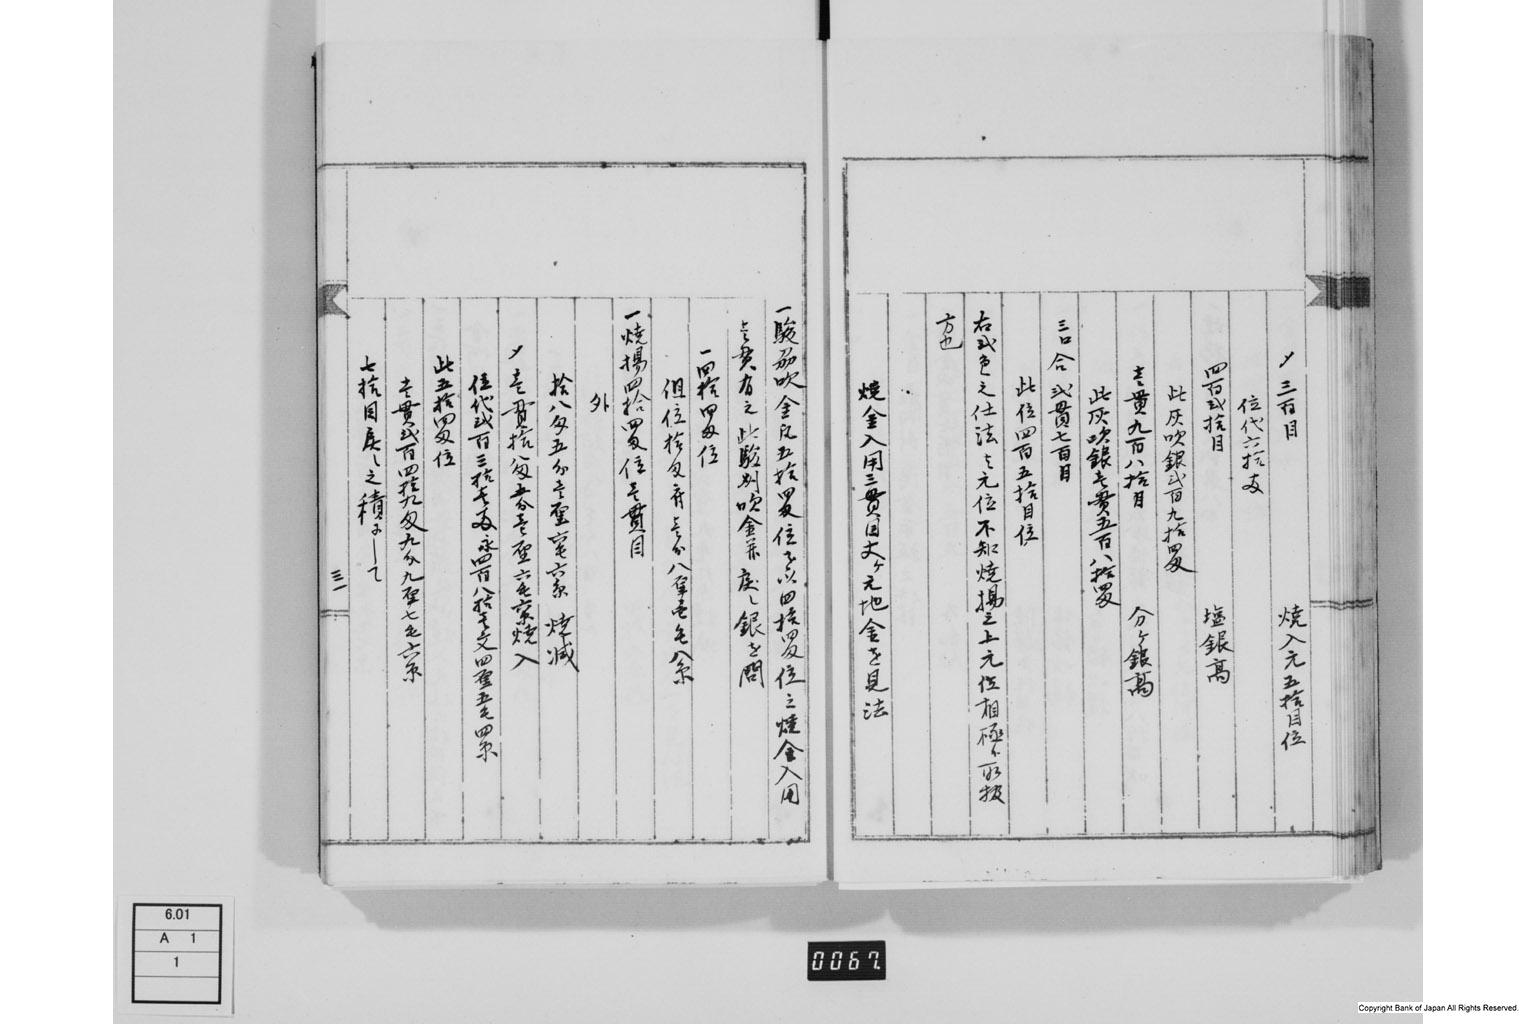 〆三百目　　　焼入元五拾目位
位代六拾両
四百弐拾目　　　塩銀高
此灰吹銀弐百九拾四匁
壱貫九百八拾目　　　分ケ銀高
此灰吹銀壱貫五百八拾四匁
三口合弐貫七百目
此位四百五拾目位
右弐色之仕法は元位不知焼揚之上元位相極候取扱
方也
焼金入用三貫目丈ケ元地金を見法
一駿弱吹金凡五拾四匁位を以四拾四匁位之焼金入用
壱貫有之此駿判吹金并戻し銀を問
一四拾四匁位
但位拾匁ニ付壱分八厘壱毛八糸
一焼揚四拾四匁位壱貫目
外
拾八匁五分壱厘壱毛六糸　焼減
〆壱貫拾八匁五分壱厘壱毛六糸焼入
位代弐百三拾壱両永四百八拾壱文四厘五毛四糸
此五拾四匁位
壱貫弐百四拾九匁九分九厘七毛六糸
七拾目戻し之積ニして
三一
6.01
A 1
1
0067
Copyright Bank of Japan All Rights Reserved.